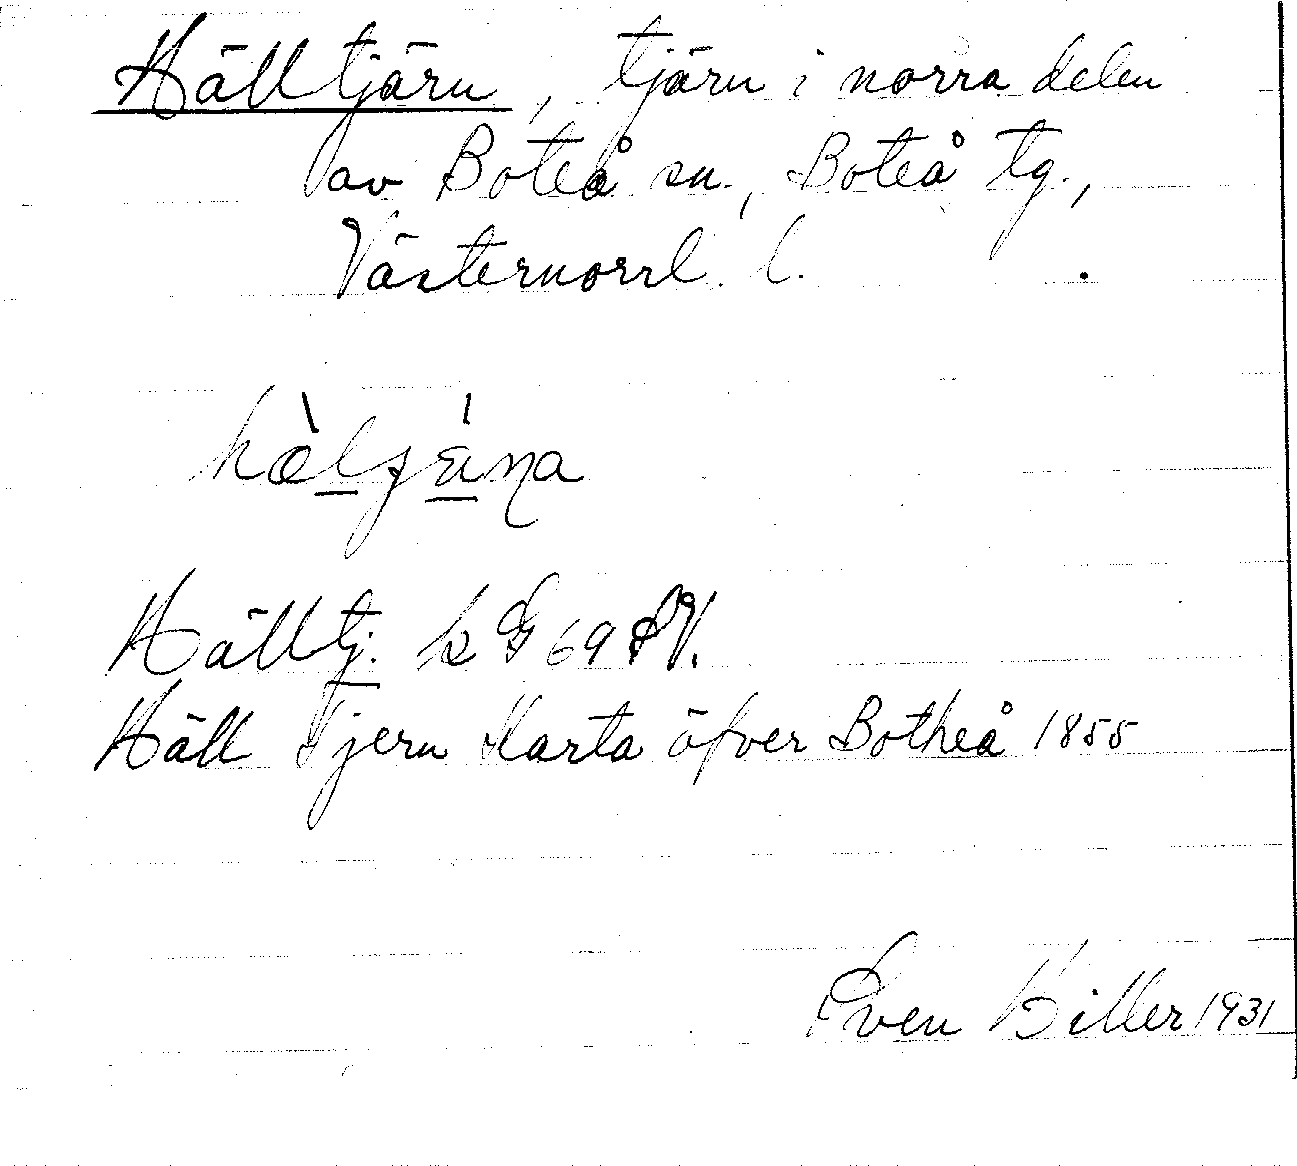 Hälltjärn, tjärn i norra delen
av Boteå sn., Boteå tg.,
Västernorrl. l.
Hälltj. k G 69 SV.
Häll Tjern Karta öfver Botheå 1855
Sven Biller 1931